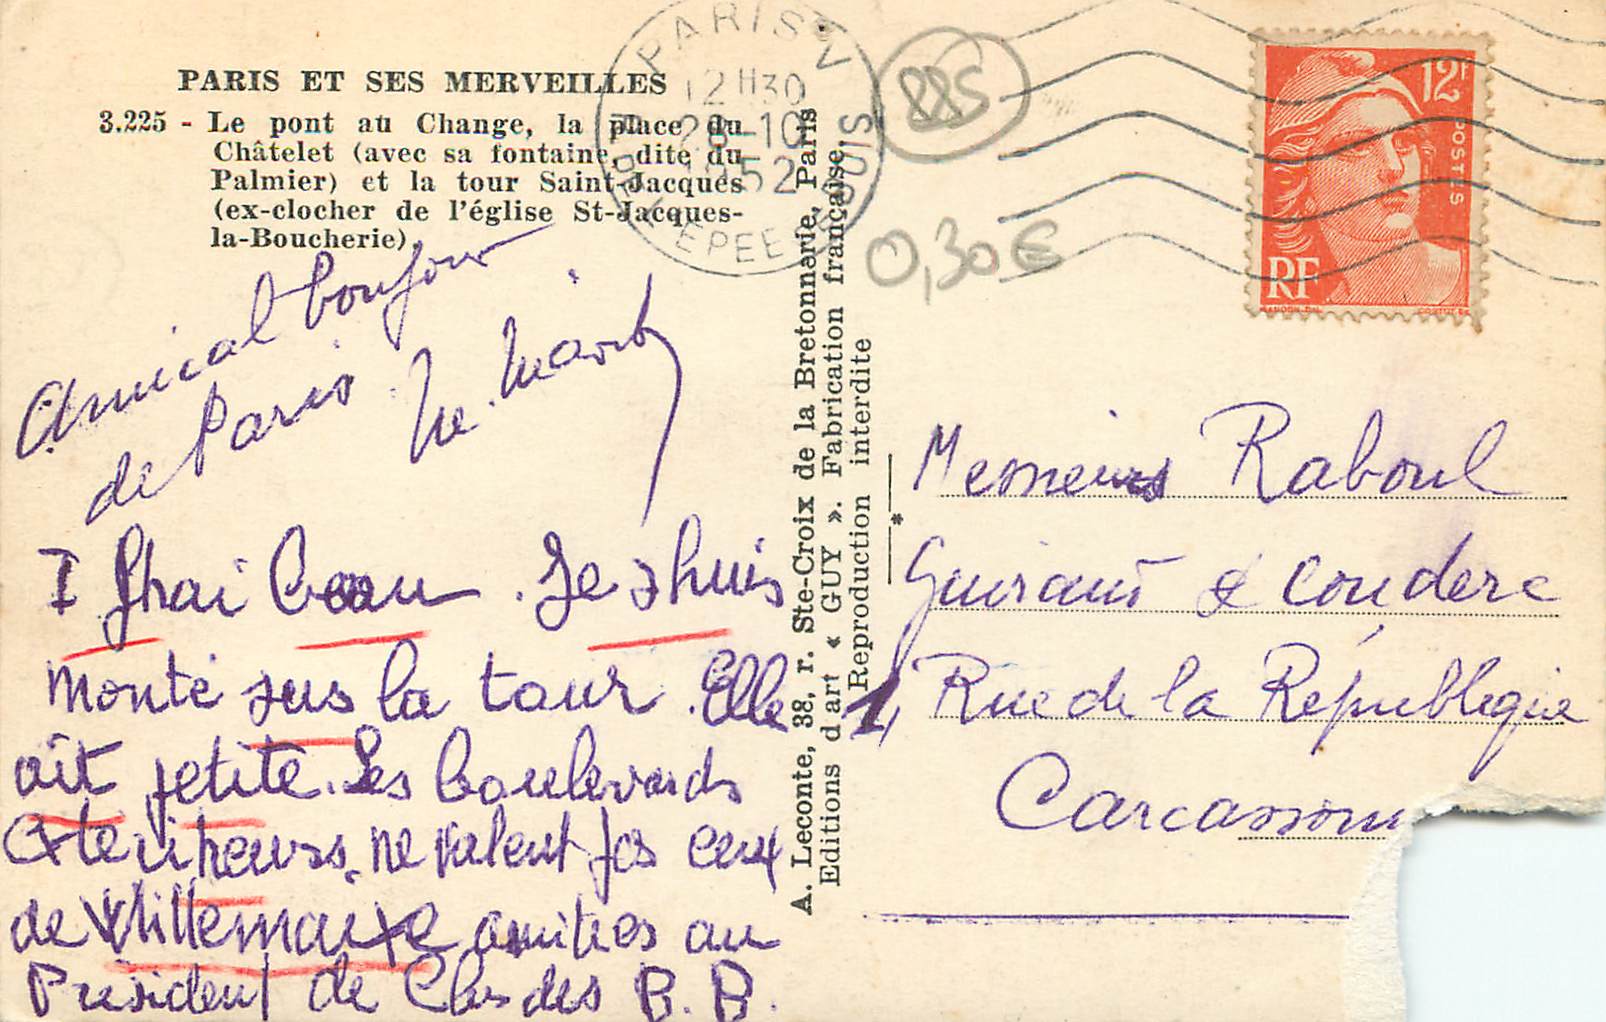 PARIS ET SES MERVEILLES
3.225 - Le pont au Change, la place du
Châtelet (avec sa fontaine, dite du
Palmier) et la tour Saint-Jacques
(ex-clocher de l'église St-Jacques-
la-Boucherie).
PARIS V
12H30
28-10
1952
R. DE L'EPEE
885
0,30 €
12F
POSTES
RF
Amical bonjour
de Paris
I fhai beau. Je shuis
monté sus la tour. Elle
ait petite. Les boulevards
exterikeurs, ne valent pas ceux
de Villemaixe amitiés au
Président de Clas des B. B.
A. Leconte, 38, r. Ste-Croix de la Bretonnerie, Paris
Editions d'art « GUY ». Fabrication française.
Reproduction interdite
Messieurs Raboul
Guiraud & Couderc
1, Rue de la République
Carcassonn